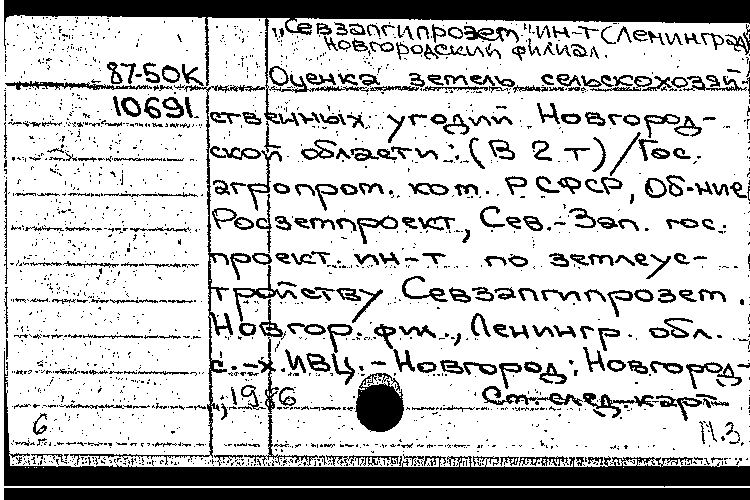 „Севзапгипрозем" ин-т (Ленинград)
Новгородский филиал.
87-50К
Оценка земель сельскохозяй
10691
ственных угодий Новгород-
ской области: (В 2 т) / Гос.
агропром. ком. РСФСР, Об-ние
Росземпроект, Сев.-Зап. гос.
проект. ин-т по землеус-
тройству Севзапгипрозем.
Новгор. фил., Ленингр. обл.
с.-х. ИВЦ. - Новгород: Новгород-
, 1986
См. след. карт
6